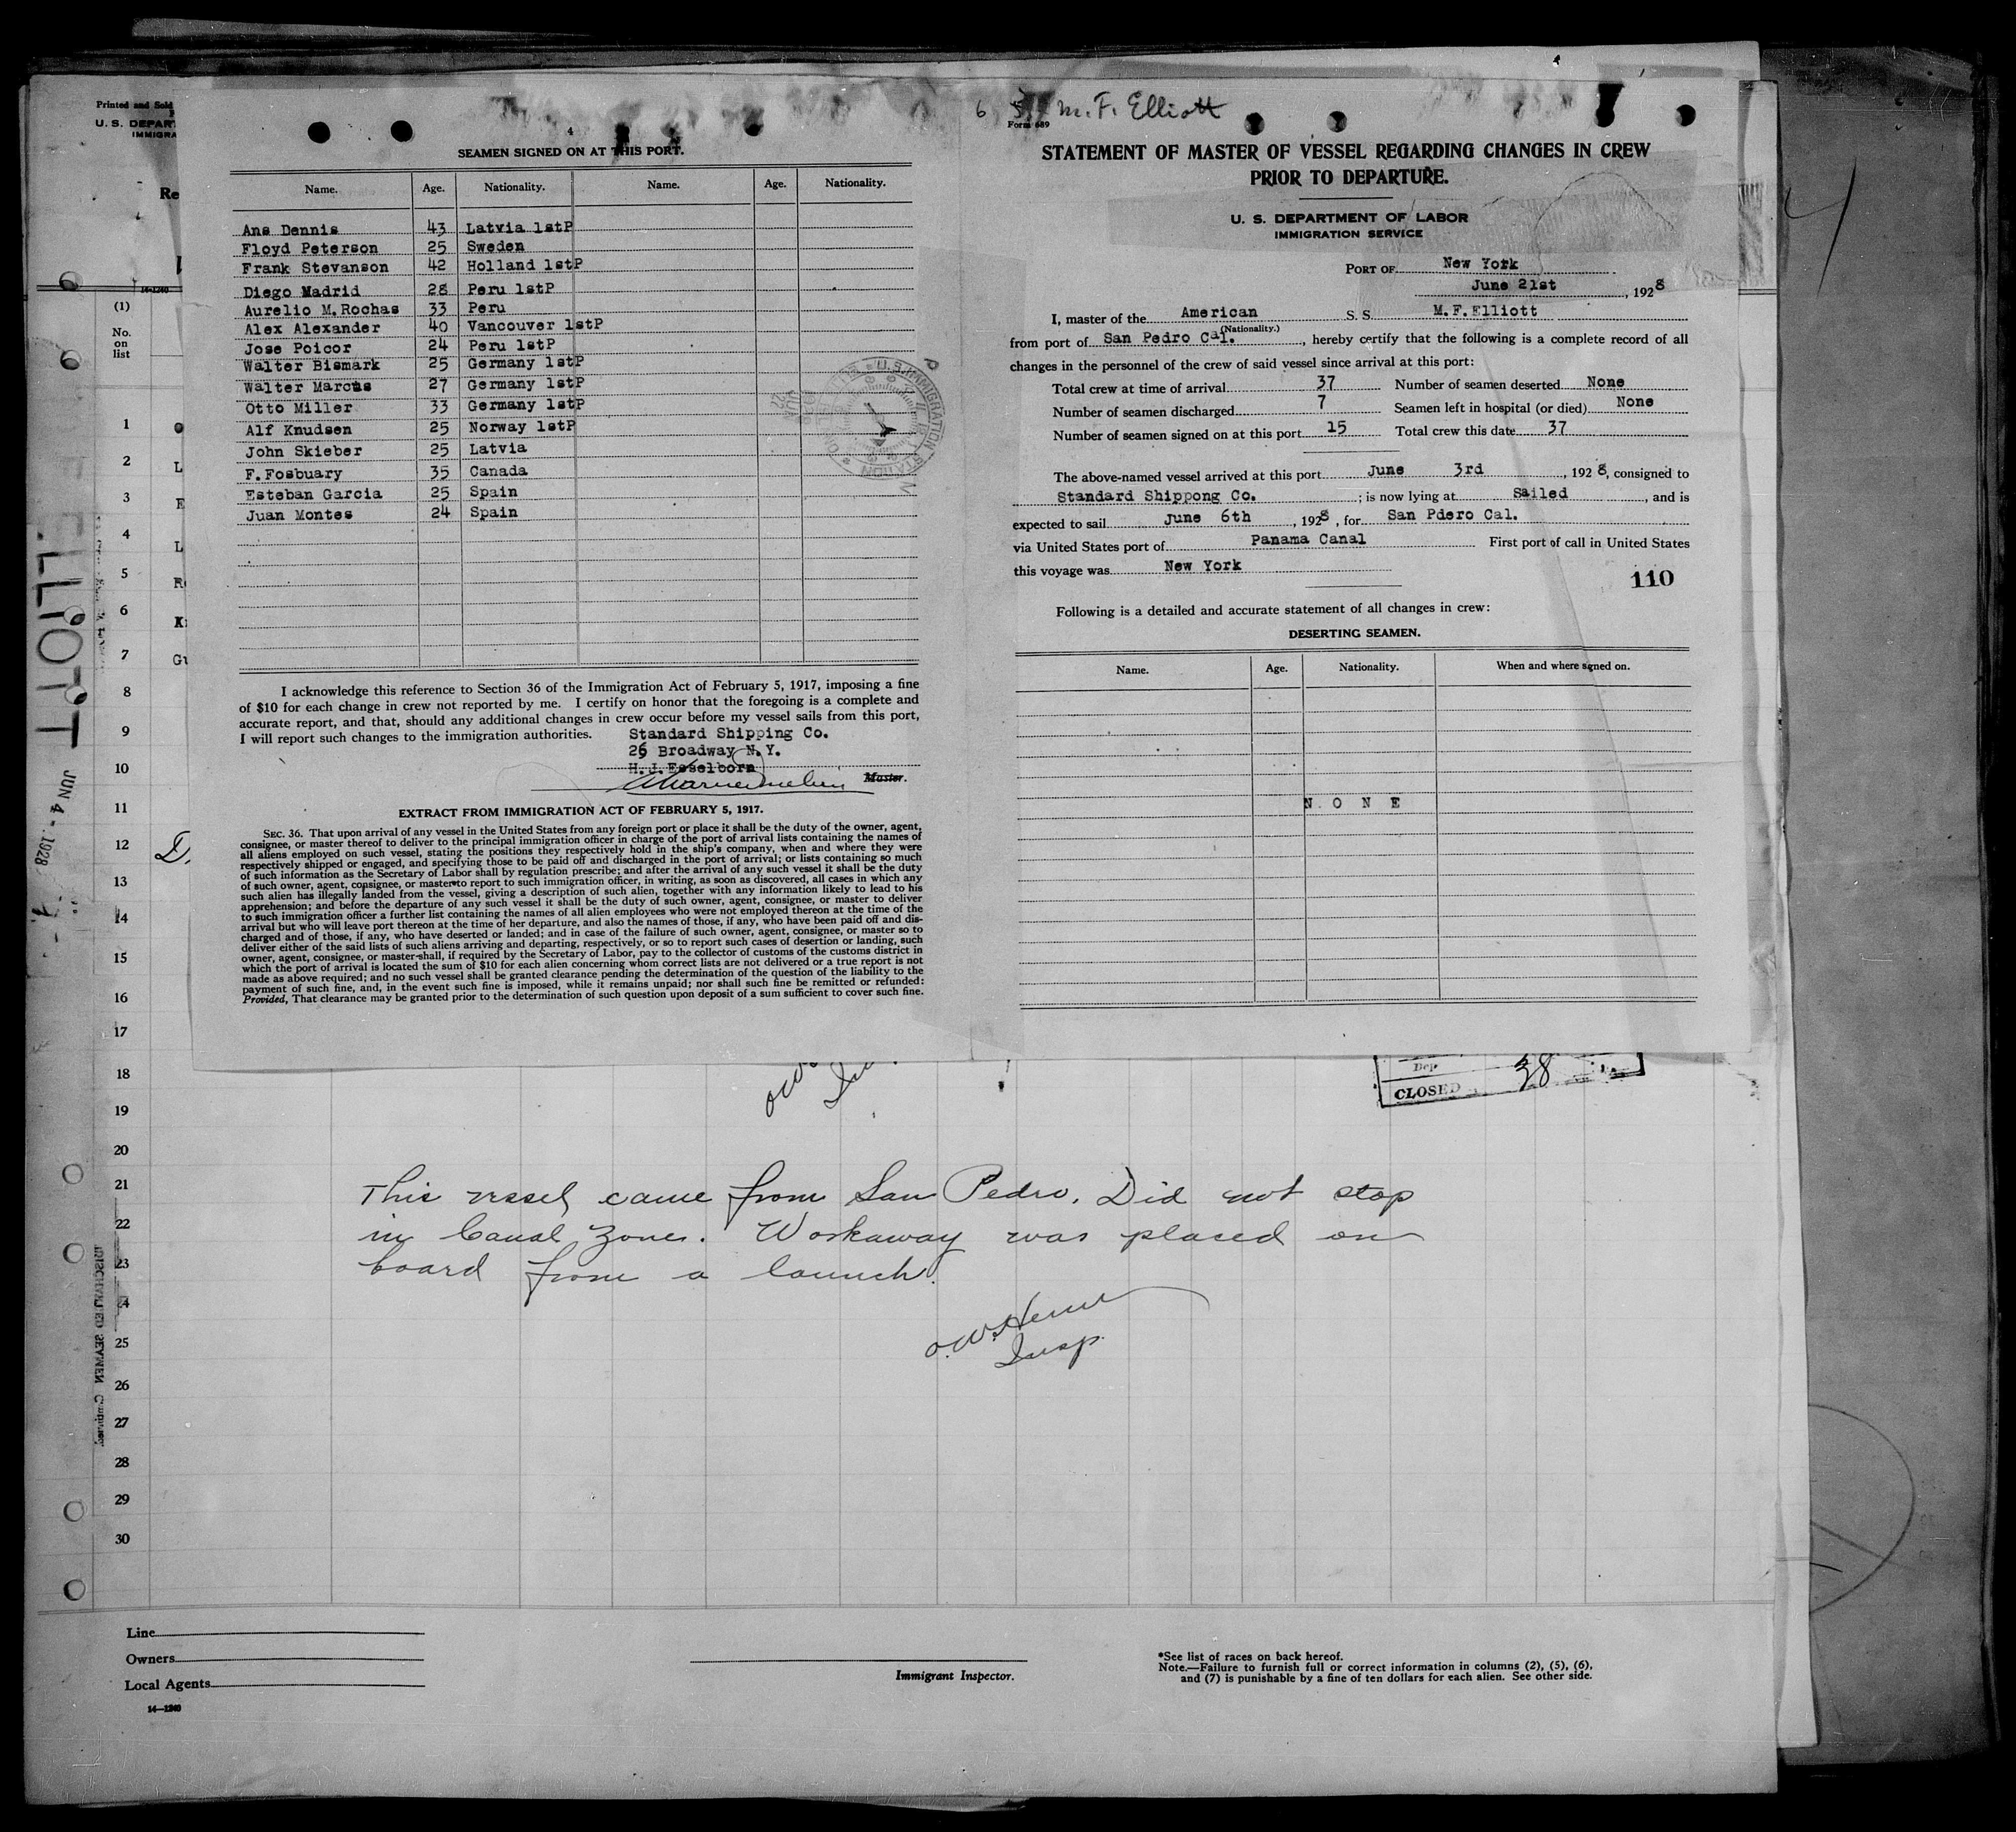 Printed and Sold
U. S. DEPAR
IMMIGRA
Re
14-1240
(1)
No.
on
list
1
2
3
4
5
6
7
8
9
10
11
12
13
14
15
16
17
18
19
20
21
22
23
24
25
26
27
28
29
30
L
E
L
K
Gu
D.
ELLIOTT
JUN 4 - 1928
DISCHARGED SEAMEN Continued.
4
SEAMEN SIGNED ON AT THIS PORT.
Name. Age. Nationality. Name. Age. Nationality.
Ans Dennis 43 Latvia 1stP
Floyd Peterson 25 Sweden
Frank Stevanson 42 Holland 1stP
Diego Madrid 28 Peru 1stP
Aurelio M. Rochas 33 Peru
Alex Alexander 40 Vancouver 1stP
Jose Poicor 24 Peru 1stP
Walter Bismark 25 Germany 1stP
Walter Marcus 27 Germany 1stP
Otto Miller 33 Germany 1stP
Alf Knudsen 25 Norway 1stP
John Skieber 25 Latvia
F. Fosbuary 35 Canada
Esteban Garcia 25 Spain
Juan Montes 24 Spain
U.S. IMMIGRATION STATION
I acknowledge this reference to Section 36 of the Immigration Act of February 5, 1917, imposing a fine
of $10 for each change in crew not reported by me. I certify on honor that the foregoing is a complete and
accurate report, and that, should any additional changes in crew occur before my vessel sails from this port,
I will report such changes to the immigration authorities. Standard Shipping Co.
26 Broadway N.Y.
H.J.Esselborn
Master.
EXTRACT FROM IMMIGRATION ACT OF FEBRUARY 5, 1917.
SEC. 36. That upon arrival of any vessel in the United States from any foreign port or place it shall be the duty of the owner, agent,
consignee, or master thereof to deliver to the principal immigration officer in charge of the port of arrival lists containing the names of
all aliens employed on such vessel, stating the positions they respectively hold in the ship's company, when and where they were
respectively shipped or engaged, and specifying those to be paid off and discharged in the port of arrival; or lists containing so much
of such information as the Secretary of Labor shall by regulation prescribe; and after the arrival of any such vessel it shall be the duty
of such owner, agent, consignee, or master to report to such immigration officer, in writing, as soon as discovered, all cases in which any
such alien has illegally landed from the vessel, giving a description of such alien, together with any information likely to lead to his
apprehension; and before the departure of any such vessel it shall be the duty of such owner, agent, consignee, or master to deliver
to such immigration officer a further list containing the names of all alien employees who were not employed thereon at the time of the
arrival but who will leave port thereon at the time of her departure, and also the names of those, if any, who have been paid off and dis-
charged and of those, if any, who have deserted or landed; and in case of the failure of such owner, agent, consignee, or master so to
deliver either of the said lists of such aliens arriving and departing, respectively, or so to report such cases of desertion or landing, such
owner, agent, consignee, or master shall, if required by the Secretary of Labor, pay to the collector of customs of the customs district in
which the port of arrival is located the sum of $10 for each alien concerning whom correct lists are not delivered or a true report is not
made as above required; and no such vessel shall be granted clearance pending the determination of the question of the liability to the
payment of such fine, and, in the event such fine is imposed, while it remains unpaid; nor shall such fine be remitted or refunded:
Provided, That clearance may be granted prior to the determination of such question upon deposit of a sum sufficient to cover such fine.
6 5 M. F. Elliott
Form 689
STATEMENT OF MASTER OF VESSEL REGARDING CHANGES IN CREW
PRIOR TO DEPARTURE.
U. S. DEPARTMENT OF LABOR
IMMIGRATION SERVICE
PORT OF New York
June 21st, 1928
I, master of the American S. S. M.F.Elliott
(Nationality.)
from port of San Pedro Cal., hereby certify that the following is a complete record of all
changes in the personnel of the crew of said vessel since arrival at this port:
Total crew at time of arrival 37 Number of seamen deserted None
Number of seamen discharged 7 Seamen left in hospital (or died) None
Number of seamen signed on at this port 15 Total crew this date 37
The above-named vessel arrived at this port June 3rd, 1928, consigned to
Standard Shippong Co.; is now lying at Sailed, and is
expected to sail June 6th, 1928, for San Pdero Cal.
via United States port of Panama Canal First port of call in United States
this voyage was New York
110
Following is a detailed and accurate statement of all changes in crew:
DESERTING SEAMEN.
Name. Age. Nationality. When and where signed on.
N O N E
Dep
CLOSED 38
This vessel came from San Pedro. Did not stop
in Canal Zone. Workaway was placed on
board from a launch.
O.W.
Insp.
Line
Owners
Local Agents
14—1240
Immigrant Inspector.
*See list of races on back hereof.
Note.—Failure to furnish full or correct information in columns (2), (5), (6),
and (7) is punishable by a fine of ten dollars for each alien. See other side.